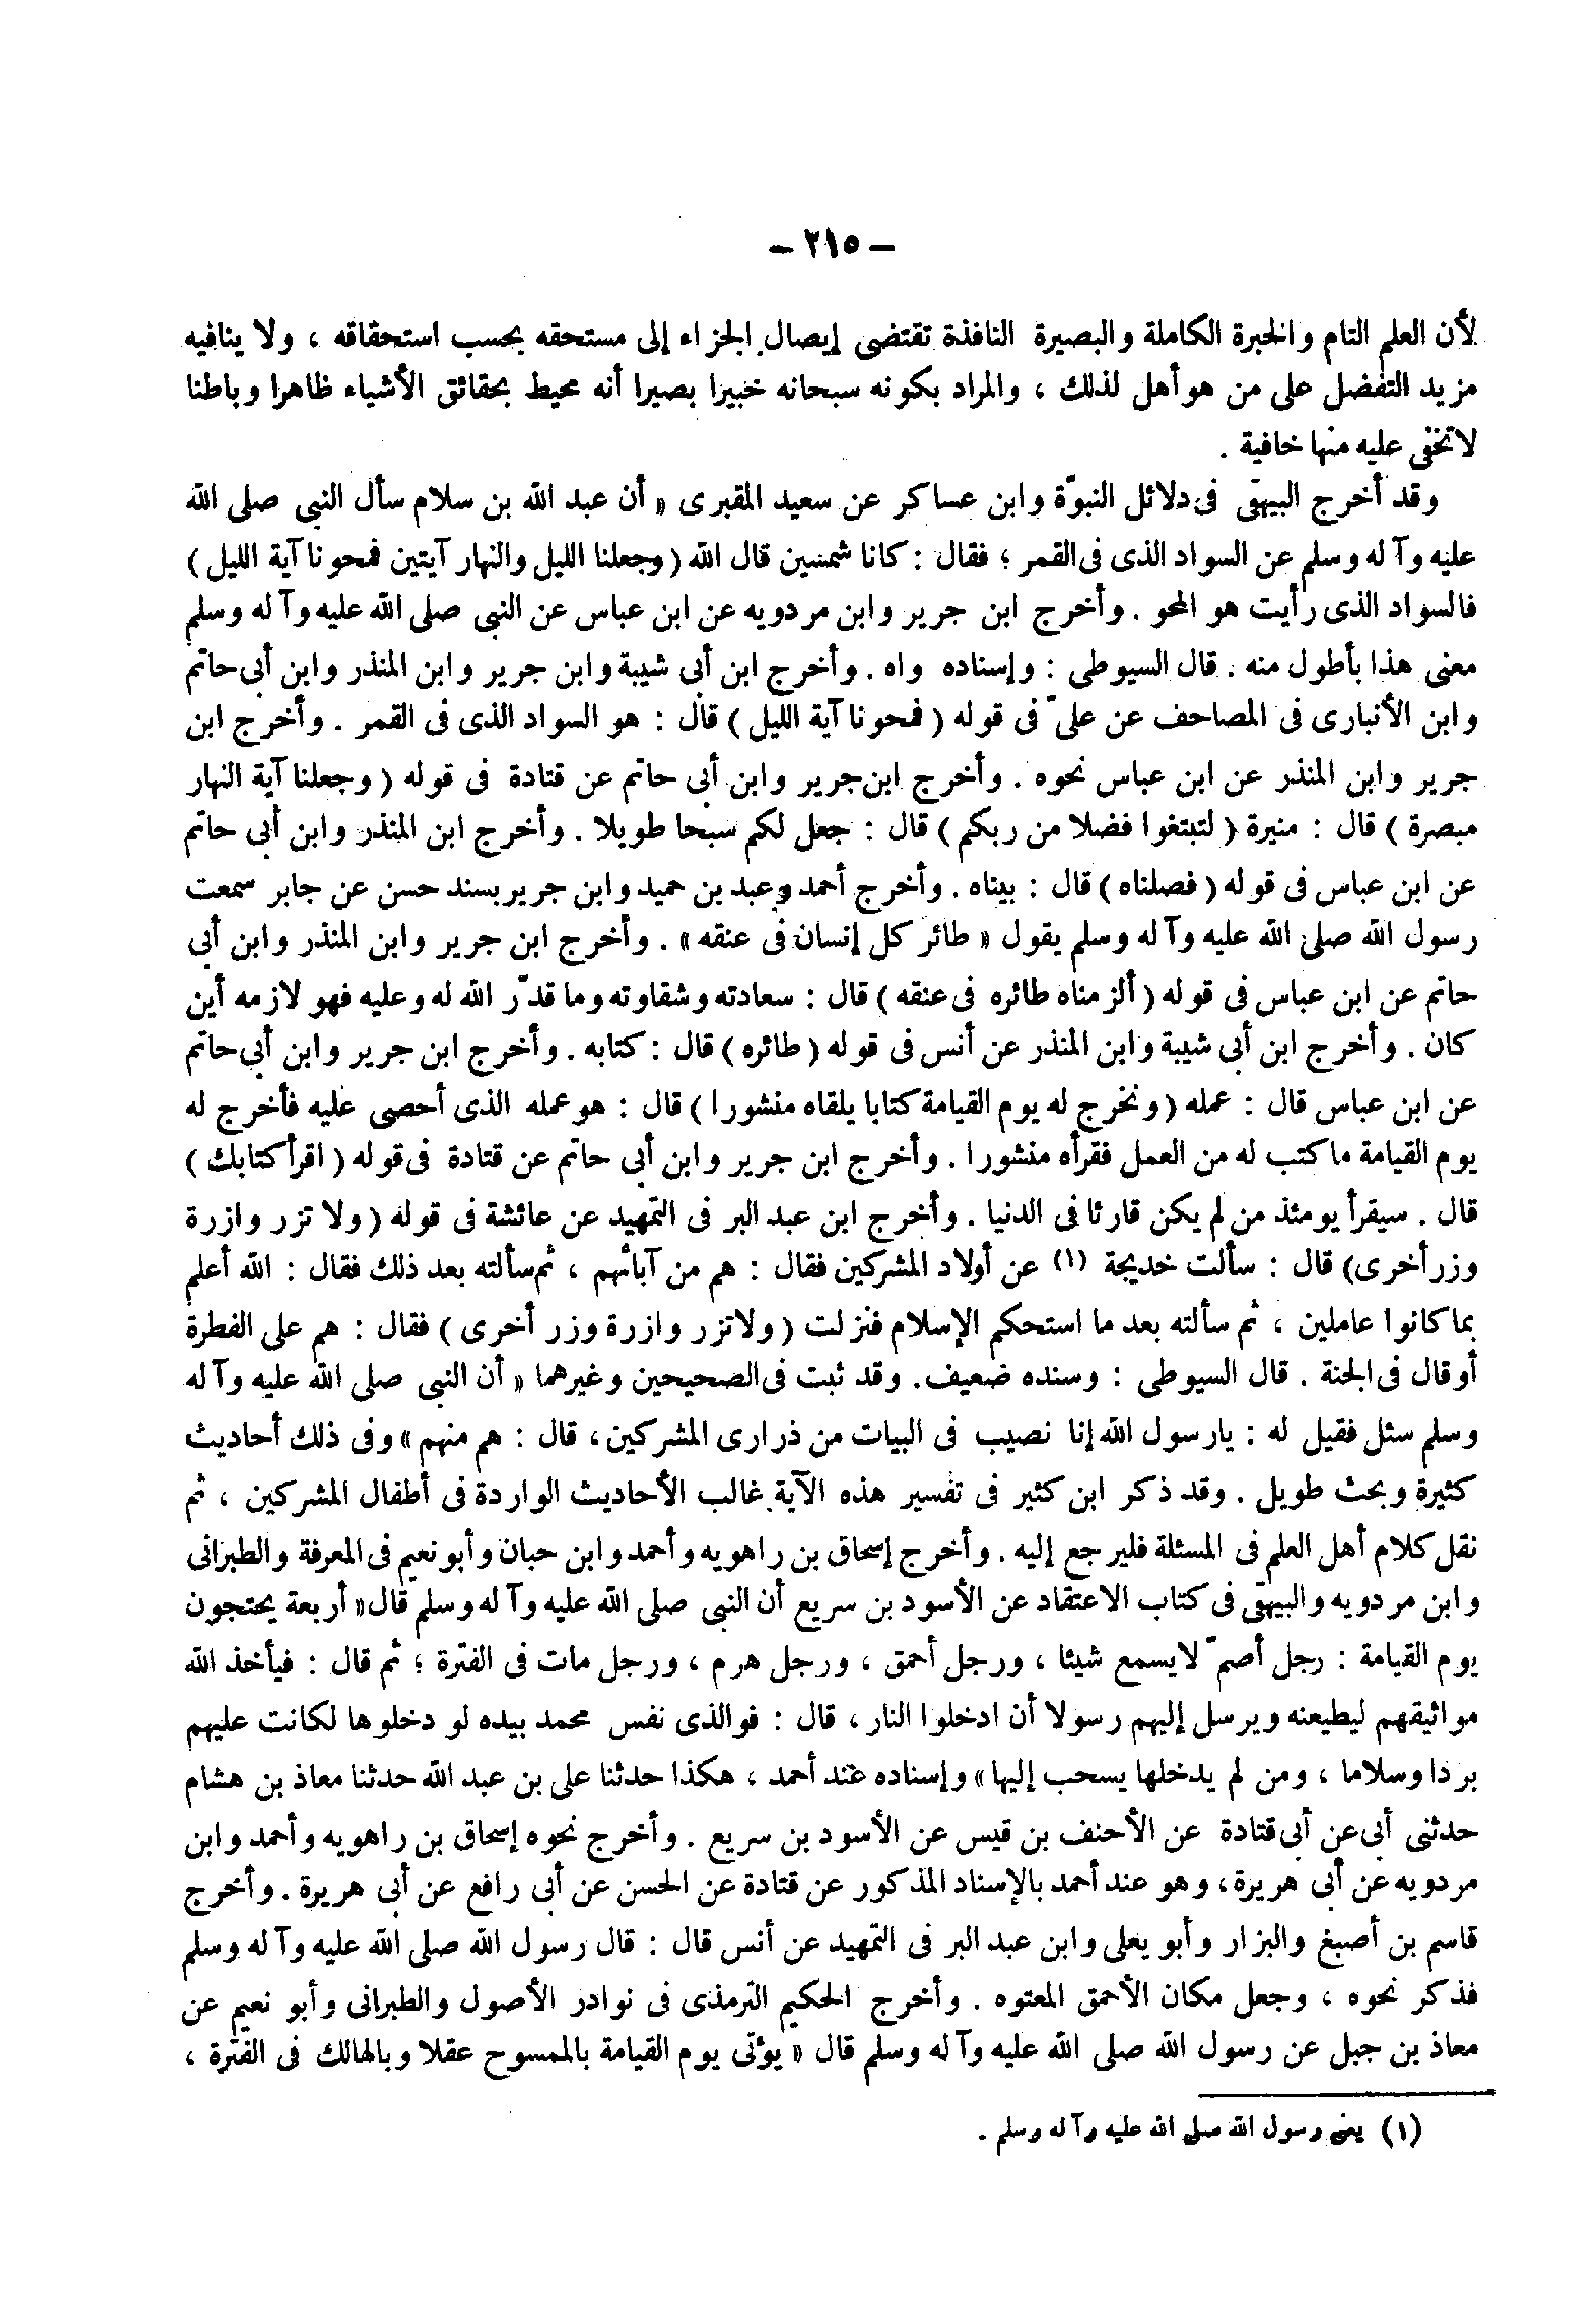 — ٢١٥ —
لأن العلم التام والخبرة الكاملة والبصيرة النافذة تقتضى إيصال الجزاء إلى مستحقه بحسب استحقاقه ، ولا ينافيه
مزيد التفضل على من هو أهل لذلك ، والمراد بكونه سبحانه خبيرا بصيرا أنه محيط بحقائق الأشياء ظاهرا وباطنا
لا تخفى عليه منها خافية .
وقد أخرج البيهقى فى دلائل النبوّة وابن عساكر عن سعيد المقبرى « أن عبد الله بن سلام سأل النبى صلى الله
عليه وآله وسلم عن السواد الذى فى القمر ؛ فقال : كانا شمسين قال الله ( وجعلنا الليل والنهار آيتين فمحونا آية الليل )
فالسواد الذى رأيت هو المحو . وأخرج ابن جرير وابن مردويه عن ابن عباس عن النبى صلى الله عليه وآله وسلم
معنى هذا بأطول منه . قال السيوطى : وإسناده واه . وأخرج ابن أبى شيبة وابن جرير وابن المنذر وابن أبى حاتم
وابن الأنبارى فى المصاحف عن علىّ فى قوله ( فمحونا آية الليل ) قال : هو السواد الذى فى القمر . وأخرج ابن
جرير وابن المنذر عن ابن عباس نحوه . وأخرج ابن جرير وابن أبى حاتم عن قتادة فى قوله ( وجعلنا آية النهار
مبصرة ) قال : منيرة ( لتبتغوا فضلا من ربكم ) قال : جعل لكم سبحا طويلا . وأخرج ابن المنذر وابن أبى حاتم
عن ابن عباس فى قوله ( فصلناه ) قال : بيناه . وأخرج أحمد وعبد بن حميد وابن جرير بسند حسن عن جابر سمعت
رسول الله صلى الله عليه وآله وسلم يقول « طائر كل إنسان فى عنقه » . وأخرج ابن جرير وابن المنذر وابن أبى
حاتم عن ابن عباس فى قوله ( ألزمناه طائره فى عنقه ) قال : سعادته وشقاوته وما قدّر الله له وعليه فهو لازمه أين
كان . وأخرج ابن أبى شيبة وابن المنذر عن أنس فى قوله ( طائره ) قال : كتابه . وأخرج ابن جرير وابن أبى حاتم
عن ابن عباس قال : عمله ( ونخرج له يوم القيامة كتابا يلقاه منشورا ) قال : هو عمله الذى أحصى عليه فأخرج له
يوم القيامة ما كتب له من العمل فقرأه منشورا . وأخرج ابن جرير وابن أبى حاتم عن قتادة فى قوله ( اقرأ كتابك )
قال . سيقرأ يومئذ من لم يكن قارئا فى الدنيا . وأخرج ابن عبد البر فى التمهيد عن عائشة فى قوله ( ولا تزر وازرة
وزر أخرى ) قال : سألت خديجة (١) عن أولاد المشركين فقال : هم من آبائهم ، ثم سألته بعد ذلك فقال : الله أعلم
بما كانوا عاملين ، ثم سألته بعد ما استحكم الإسلام فنزلت ( ولا تزر وازرة وزر أخرى ) فقال : هم على الفطرة
أو قال فى الجنة . قال السيوطى : وسنده ضعيف . وقد ثبت فى الصحيحين وغيرهما « أن النبى صلى الله عليه وآله
وسلم سئل فقيل له : يا رسول الله إنا نصيب فى البيات من ذرارى المشركين ، قال : هم منهم » وفى ذلك أحاديث
كثيرة وبحث طويل . وقد ذكر ابن كثير فى تفسير هذه الآية غالب الأحاديث الواردة فى أطفال المشركين ، ثم
نقل كلام أهل العلم فى المسئلة فليرجع إليه . وأخرج إسحاق بن راهويه وأحمد وابن حبان وأبو نعيم فى المعرفة والطبرانى
وابن مردويه والبيهقى فى كتاب الاعتقاد عن الأسود بن سريع أن النبى صلى الله عليه وآله وسلم قال « أربعة يحتجون
يوم القيامة : رجل أصمّ لا يسمع شيئا ، ورجل أحمق ، ورجل هرم ، ورجل مات فى الفترة ؛ ثم قال : فيأخذ الله
مواثيقهم ليطيعنه ويرسل إليهم رسولا أن ادخلوا النار ، قال : فوالذى نفس محمد بيده لو دخلوها لكانت عليهم
بردا وسلاما ، ومن لم يدخلها يسحب إليها » وإسناده عند أحمد ، هكذا حدثنا على بن عبد الله حدثنا معاذ بن هشام
حدثنى أبى عن أبى قتادة عن الأحنف بن قيس عن الأسود بن سريع . وأخرج نحوه إسحاق بن راهويه وأحمد وابن
مردويه عن أبى هريرة ، وهو عند أحمد بالإسناد المذكور عن قتادة عن الحسن عن أبى رافع عن أبى هريرة . وأخرج
قاسم بن أصبغ والبزار وأبو يعلى وابن عبد البر فى التمهيد عن أنس قال : قال رسول الله صلى الله عليه وآله وسلم
فذكر نحوه ، وجعل مكان الأحمق المعتوه . وأخرج الحكيم الترمذى فى نوادر الأصول والطبرانى وأبو نعيم عن
معاذ بن جبل عن رسول الله صلى الله عليه وآله وسلم قال « يؤتى يوم القيامة بالممسوح عقلا وبالهالك فى الفترة ،
(١) يعنى رسول الله صلى الله عليه وآله وسلم .